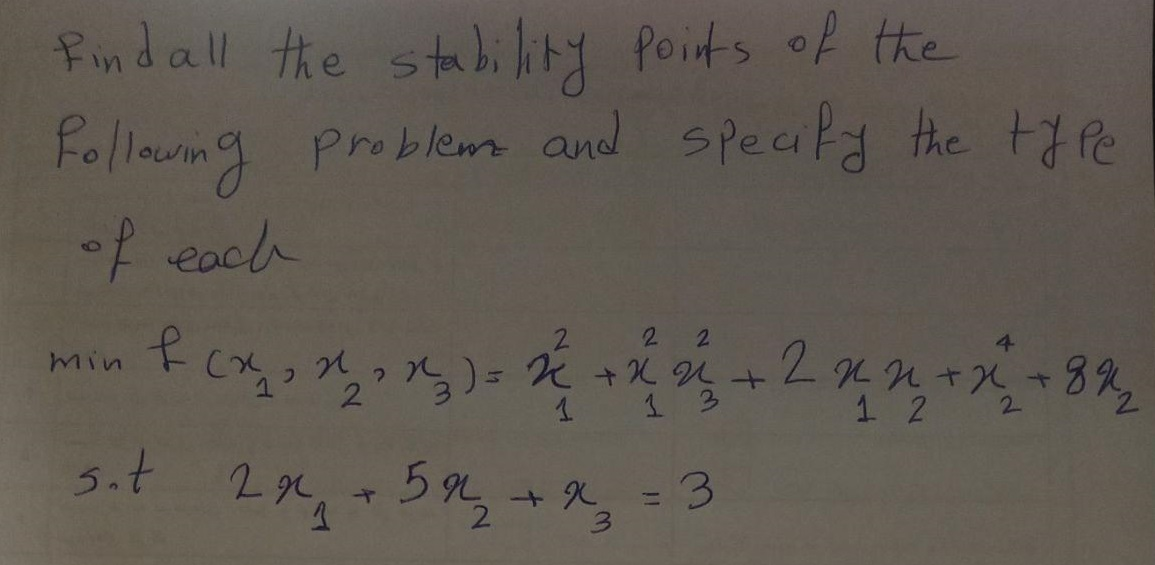 Find all the stability points of the
following problem and specify the type
of each
min f(x₁, x₂, x₃) = x₁² + x₁² x₃² + 2 x₁ x₂ + x₂⁴ + 8x₂
s.t 2x₁ + 5x₂ + x₃ = 3